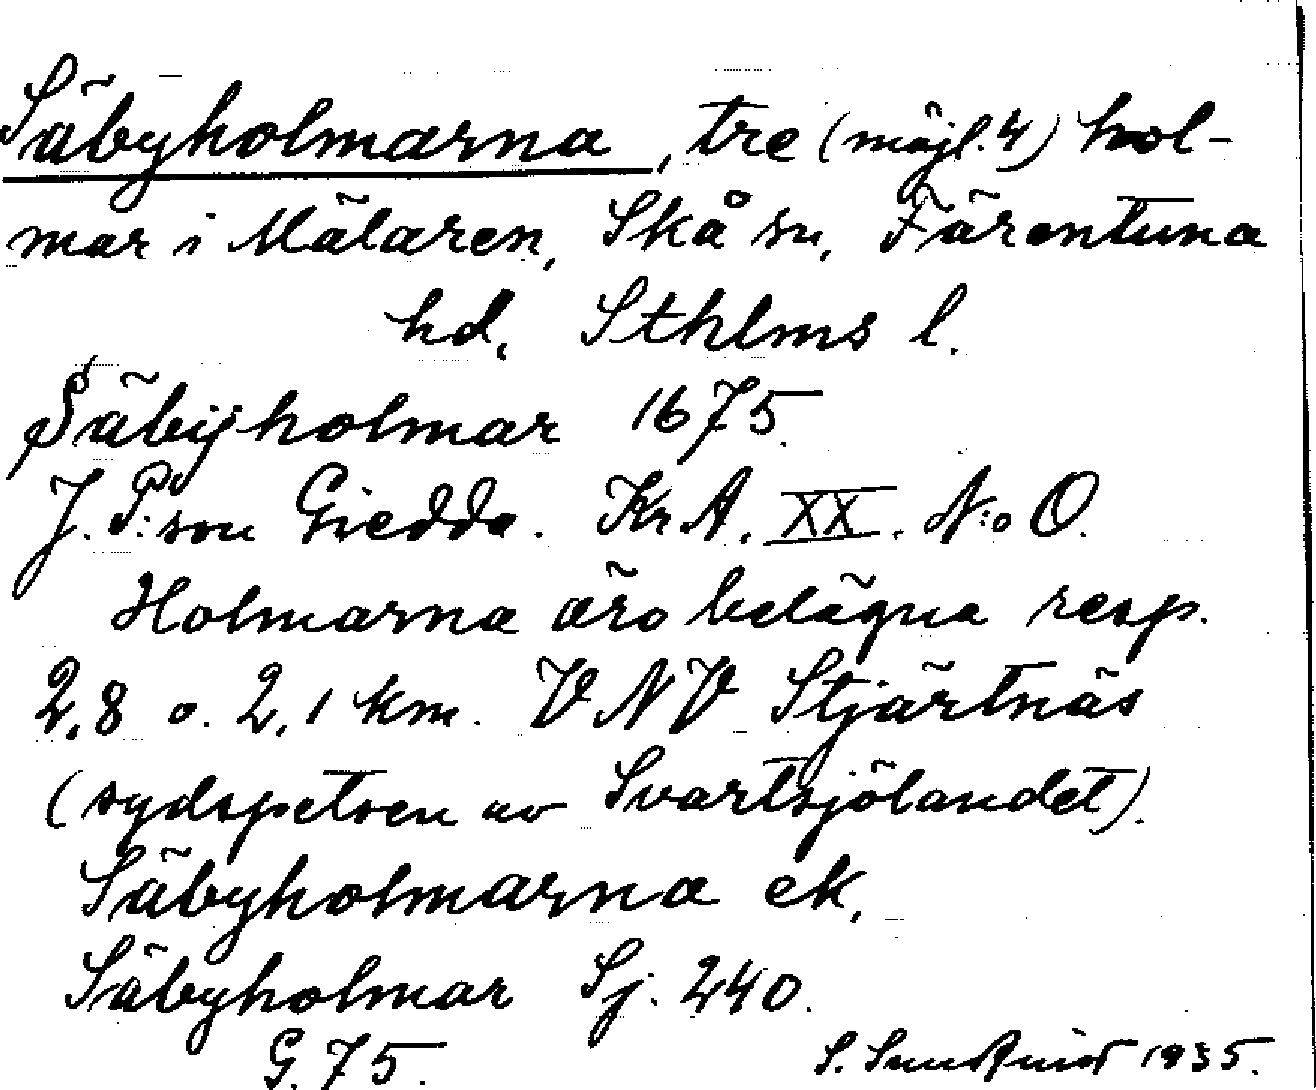 Säbyholmarna, tre (möjl. 4) hol-
mar i Mälaren, Skå sn, Färentuna
hd, Sthlms l.
Säbijholmar 1675.
J. P:son Giedda. Kr A. XX. N:o O.
Holmarna äro belägna resp.
2,8 o. 2,1 km. V N V Stjärtnäs
(sydspetsen av Svartsjölandet).
Säbyholmarna ek.
Säbyholmar Sj. 240.
G. 75.
S. 1935.